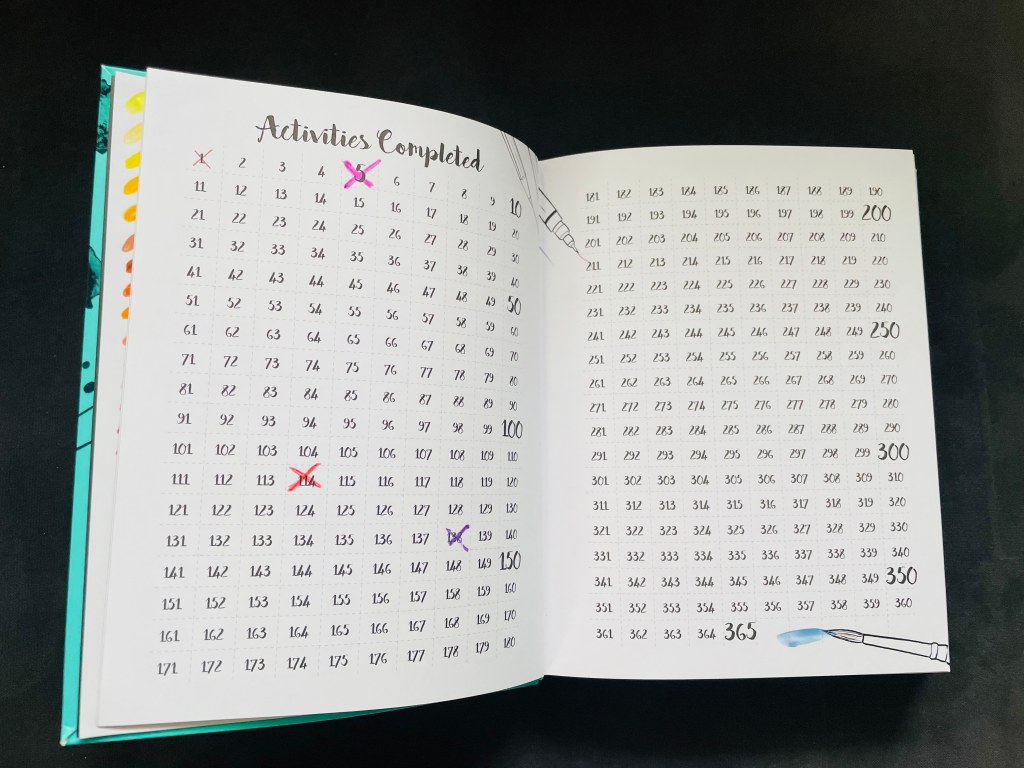 Activities Completed
1 2 3 4 5 6 7 8 9 10
11 12 13 14 15 16 17 18 19 20
21 22 23 24 25 26 27 28 29 30
31 32 33 34 35 36 37 38 39 40
41 42 43 44 45 46 47 48 49 50
51 52 53 54 55 56 57 58 59 60
61 62 63 64 65 66 67 68 69 70
71 72 73 74 75 76 77 78 79 80
81 82 83 84 85 86 87 88 89 90
91 92 93 94 95 96 97 98 99 100
101 102 103 104 105 106 107 108 109 110
111 112 113 114 115 116 117 118 119 120
121 122 123 124 125 126 127 128 129 130
131 132 133 134 135 136 137 138 139 140
141 142 143 144 145 146 147 148 149 150
151 152 153 154 155 156 157 158 159 160
161 162 163 164 165 166 167 168 169 170
171 172 173 174 175 176 177 178 179 180
181 182 183 184 185 186 187 188 189 190
191 192 193 194 195 196 197 198 199 200
201 202 203 204 205 206 207 208 209 210
211 212 213 214 215 216 217 218 219 220
221 222 223 224 225 226 227 228 229 230
231 232 233 234 235 236 237 238 239 240
241 242 243 244 245 246 247 248 249 250
251 252 253 254 255 256 257 258 259 260
261 262 263 264 265 266 267 268 269 270
271 272 273 274 275 276 277 278 279 280
281 282 283 284 285 286 287 288 289 290
291 292 293 294 295 296 297 298 299 300
301 302 303 304 305 306 307 308 309 310
311 312 313 314 315 316 317 318 319 320
321 322 323 324 325 326 327 328 329 330
331 332 333 334 335 336 337 338 339 340
341 342 343 344 345 346 347 348 349 350
351 352 353 354 355 356 357 358 359 360
361 362 363 364 365